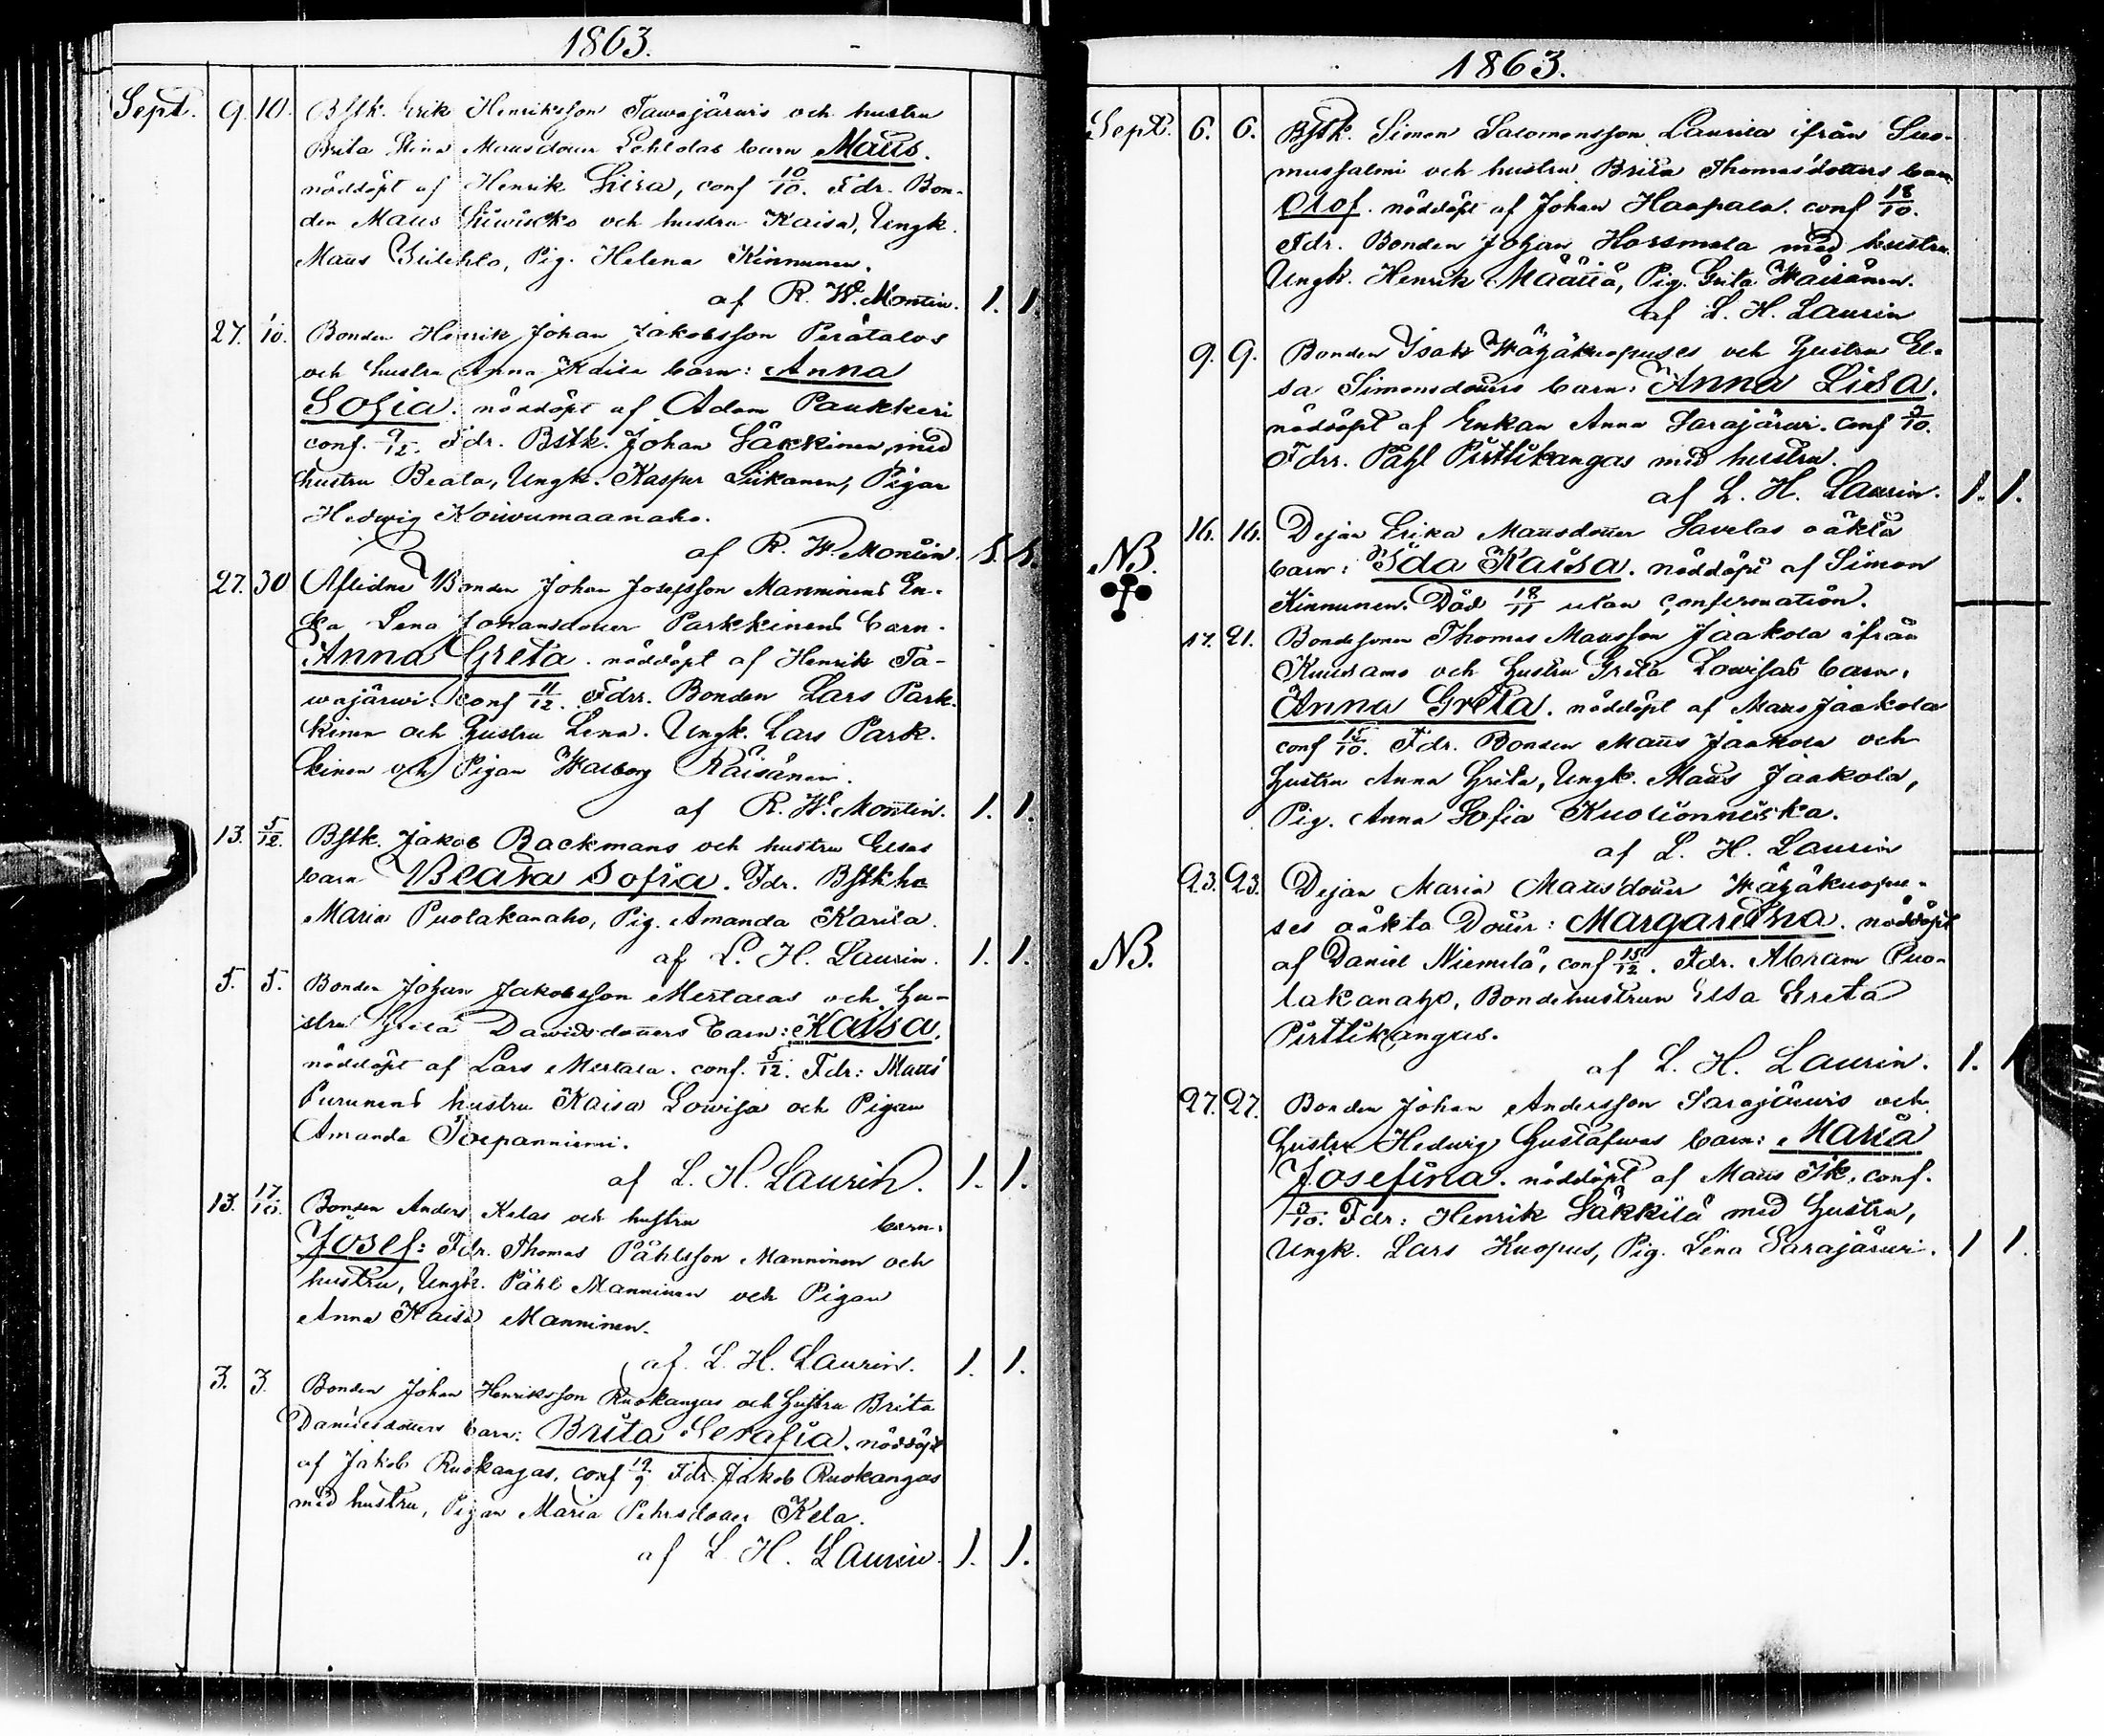 1863.
Sept. 9. 10. Bstk. Erik Henriksson Tawajärwis och hustru
Brita Stina Mausdotter barn Maus.
nöddöpt af Henrik Siira, conf 10/10. Fdr. Bon-
den Maus och hustru Kaisa, Ungk.
Maus Pig. Helena Kinnunen.
af R. W. Montin. 1. 1.
27. Bonden Henrik Johan Jakobsson Perätalos
och hustru Anna Kaisa barn: Anna
Sofia. nöddöpt af Adam Paukkeri
conf. 9/12. Fdr. Bstk. Johan Säkkinen med
hustru Beata, Ungk. Kasper Pigan
Hedwig Koiwumaanaho.
af R. W. Montin.
27. 30 Aflidne Bonden Johan Josefsson Manninens En-
ka Lena Johansdotter Parkkinens barn.
Anna Greta. nöddöpt af Henrik Ta-
wajärwi. conf 11/12. Fdrr. Bonden Lars Park-
kinen och hustru Lena. Ungk. Lars Park-
kinen och Pigan Walborg Räisänen.
af R. W. Montin. 1. 1.
13. 5/12. Bstk. Jakob Backmans och hustru Elsas
barn Beata Sofia. Fdr. Bstkhu
Maria Puolakanaho, Pig. Amanda Karila.
af L. H. Laurin. 1. 1.
5. 5. Bonden Johan Jakobsson Mertalas och hu-
stru Greta Dawidsdotters barn: Kaisa.
nöddöpt af Lars Mertala. conf. 5/12. Fdr: Matts
Purunens hustru Kaisa Lowisa och Pigan
Amanda
af L. H. Laurin. 1. 1.
13. 17/10. Bonden Anders Kelas och hustru barn:
Josef: Fdr. Thomas Påhlsson Manninen och
hustru, Ungk. Påhl Manninen och Pigan
Anna Kaisa Manninen.
af L. H. Laurin. 1. 1.
3. 3. Bonden Johan Henriksson Ruokangas och hustru Brita
Danielsdotters barn: Brita Serafia. nöddöpt
af Jakob Ruokangas, conf 19/9 Fdr. Jakob Ruokangas
med hustru, Pigan Maria Pehrsdotter Kela.
af L. H. Laurin. 1. 1.
1863.
Sept. 6. 6. Bstk. Simon Salomonsson Laurila ifrån Suo-
mussalmi och hustru Brita Thomasdotters barn
Olof. nöddöpt af Johan Haapala. conf 18/10.
Fdr. Bonden Johan Horsmala med hustru.
Ungk. Henrik Määttä, Pig. Greta Wäisänen.
af L. H. Laurin
9. 9. Bonden Isak Wäyäkuopuses och hustru El-
sa Simonsdotters barn: Anna Lisa.
nöddöpt af Enkan Anna Sarajärwi. conf
Fdrr. Påhl Pirttikangas med hustru.
af L. H. Laurin. 1. 1.
NB. 16. 16. Dejan Erika Mattsdotter Savelas oäkta
barn: Ida Kaisa. nöddöpt af Simon
Kinnunen. Död 18/11 utan confirmation.
17. 21. Bondesonen Thomas Mausson Jaakola ifrån
Kuusamo och hustru Greta Lowisas barn.
Anna Greta. nöddöpt af Maus Jaakola
conf 15/10. Fdr. Bonden Matts Jaakola och
hustru Anna Greta, Ungk. Maus Jaakola,
Pig. Anna Sofia Kuolionniska.
af L. H. Laurin
23. 23. Dejan Maria Mausdotter Wäyäkuopu-
NB. ses oäkta Dotter: Margaretha. nöddöpt
af Daniel Niemelä, conf 15/12. Fdr. Abram Puo-
lakanaho, Bondehustrun Elsa Greta
Pirttikangas.
af L. H. Laurin. 1. 1
27. 27. Bonden Johan Andersson Sarajärwis och
hustru Hedwig Gustafwas barn: Maria
Josefina. nöddöpt af Maus Ik. conf.
Fdr: Henrik Säkkilä med hustru,
Ungk. Lars Kuopus, Pig. Lena Sarajärwi. 1 1.